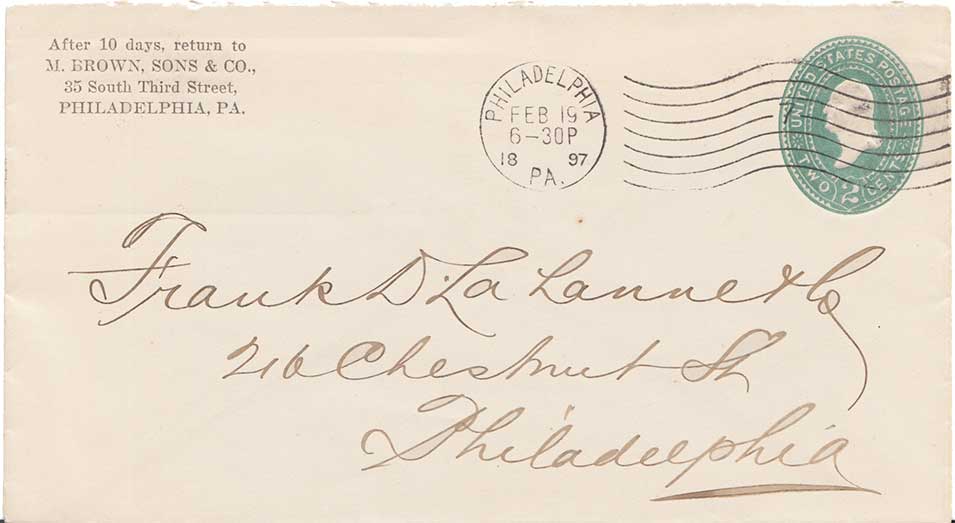 After 10 days, return to
M. BROWN, SONS & CO.,
35 South Third Street,
PHILADELPHIA, PA.
PHILADELPHIA
FEB 19
6-30P
18 97
PA.
UNITED STATES POSTAGE
TWO 2 CENTS
Frank D. La Lanne & Co
216 Chestnut St
Philadelphia